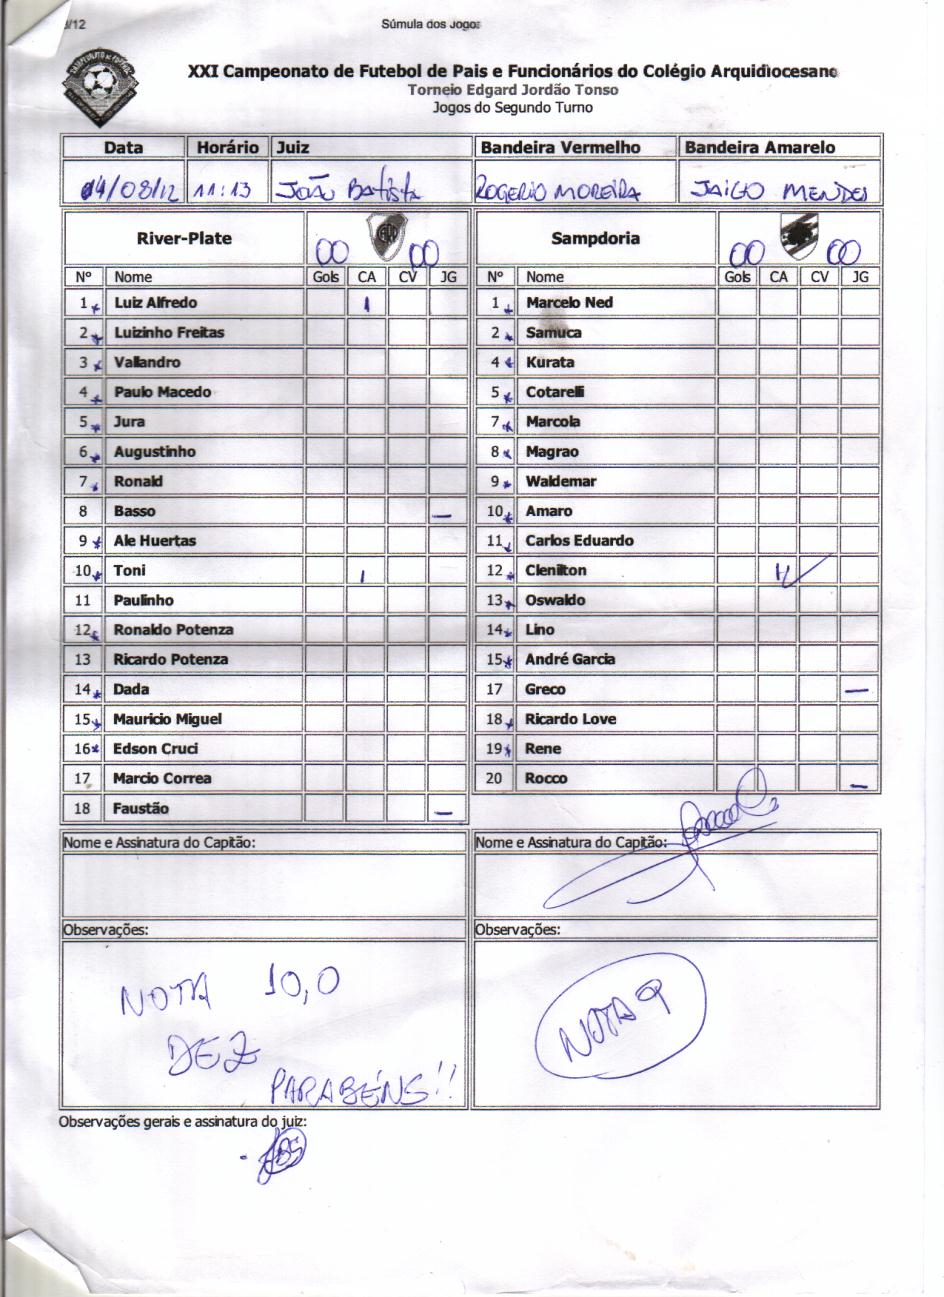 /12
Súmula dos Jogos
XXI Campeonato de Futebol de Pais e Funcionários do Colégio Arquidiocesano
Torneio Edgard Jordão Tonso
Jogos do Segundo Turno
Data Horário Juiz Bandeira Vermelho Bandeira Amarelo
04/08/12 11:13 João Batista ROGERIO MOREIRA JAIGO MENDES
River-Plate 00 00 Sampdoria 00 00
Nº Nome Gols CA CV JG Nº Nome Gols CA CV JG
1 Luiz Alfredo 1 Marcelo Ned
2 Luizinho Freitas 2 Samuca
3 Vallandro 4 Kurata
4 Paulo Macedo 5 Cotarelli
5 Jura 7 Marcola
6 Augustinho 8 Magrao
7 Ronald 9 Waldemar
8 Basso — 10 Amaro
9 Ale Huertas 11 Carlos Eduardo
10 Toni 12 Clenilton
11 Paulinho 13 Oswaldo
12 Ronaldo Potenza 14 Lino
13 Ricardo Potenza 15 André Garcia
14 Dada 17 Greco —
15 Mauricio Miguel 18 Ricardo Love
16 Edson Cruci 19 Rene
17 Marcio Correa 20 Rocco —
18 Faustão —
Nome e Assinatura do Capitão: Nome e Assinatura do Capitão:
Observações: Observações:
NOTA 10,0 NOTA 9
DEZ
PARABÉNS!!
Observações gerais e assinatura do juiz: